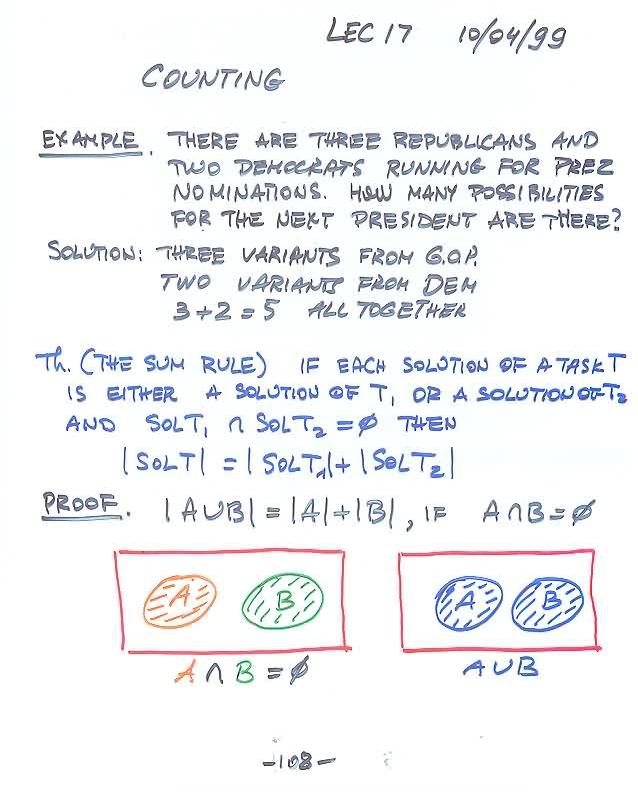 LEC 17 10/04/99
COUNTING
EXAMPLE. THERE ARE THREE REPUBLICANS AND
TWO DEMOCRATS RUNNING FOR PREZ
NOMINATIONS. HOW MANY POSSIBILITIES
FOR THE NEXT PRESIDENT ARE THERE?
SOLUTION: THREE VARIANTS FROM G.O.P.
TWO VARIANTS FROM DEM
3+2=5 ALL TOGETHER
Th. (THE SUM RULE) IF EACH SOLUTION OF A TASK T
IS EITHER A SOLUTION OF T₁ OR A SOLUTION OF T₂
AND SOLT₁ ∩ SOLT₂ = ∅ THEN
|SOLT| = |SOLT₁| + |SOLT₂|
PROOF. |A∪B| = |A|+|B|, IF A∩B=∅
A B A B
A ∩ B = ∅ A∪B
-108-